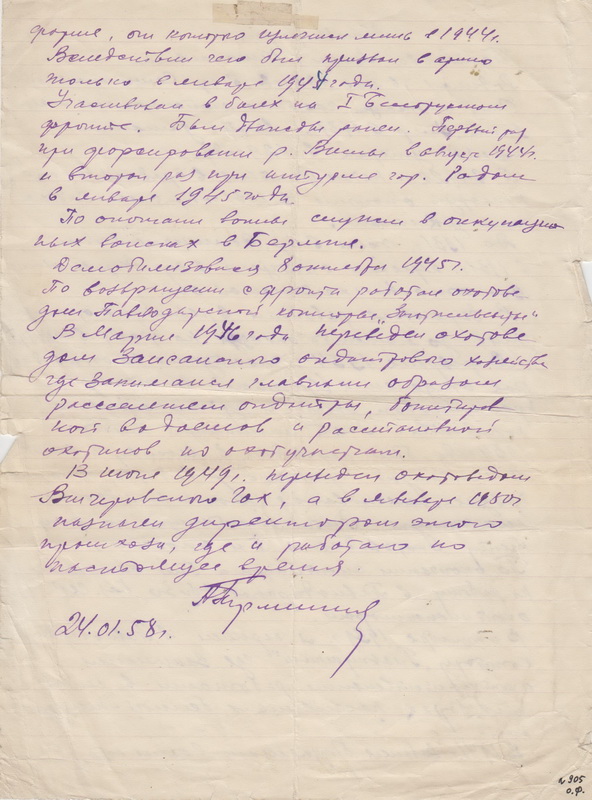 форме, от которой излечился лишь в 1944 г.
Вследствии чего был призван в армию
только в январе 1944 года.
Участвовал в боях на I Белорусском
фронте. Был дважды ранен. Первый раз
при форсировании р. Вислы в август 1944 г.
и второй раз при штурме гор. Радом
в январе 1945 года.
По окончании войны служил в оккупацион
ных войсках в Берлине.
Демобилизовался 8 октября 1945 г.
По возвращении с фронта работал охотове
дом Павлодарской конторы „Заготживсырье"
В Марте 1946 года переведен охотове
дом Зайсанского ондатрового хозяйства
где занимался главным образом
расселением ондатры, бонитиров
кой водоемов и расстановкой
охотников по охотучасткам.
В июле 1949 г. переведен охотоведом
гох, а в январе 1950 г
назначен директором этого
промхоза, где и работаю по
настоящее время.
24.01.58 г.
№ 905
О.Ф.